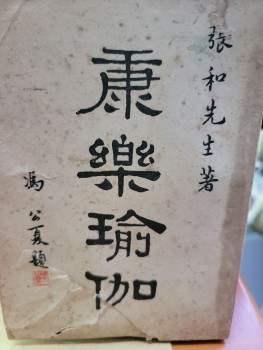 張和先生著
康樂瑜伽
馮公夏題